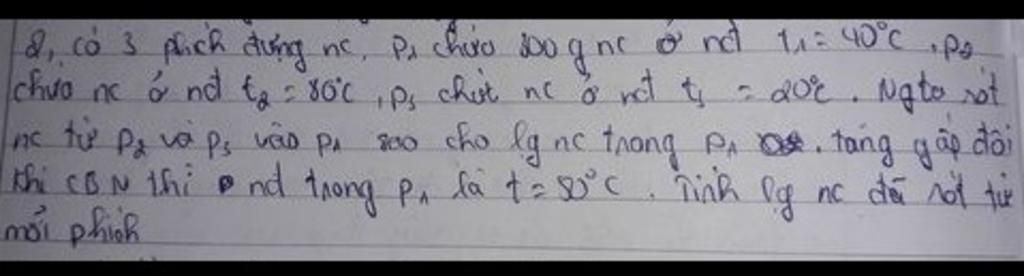 2, có 3 phích đựng nc, P₁ chứa 300 g nc ở nđ t₁ = 40°C, P₂
chứa nc ở nđ t₂ = 80°C, P₃ chứa nc ở nđ t₃ = 20°C. Ngta rót
nc từ P₂ và P₃ vào P₁ sao cho lg nc trong P₁ tăng gấp đôi
khi CBN thì nđ trong P₁ là t = 50°C. Tính lg nc đã rót từ
mỗi phích